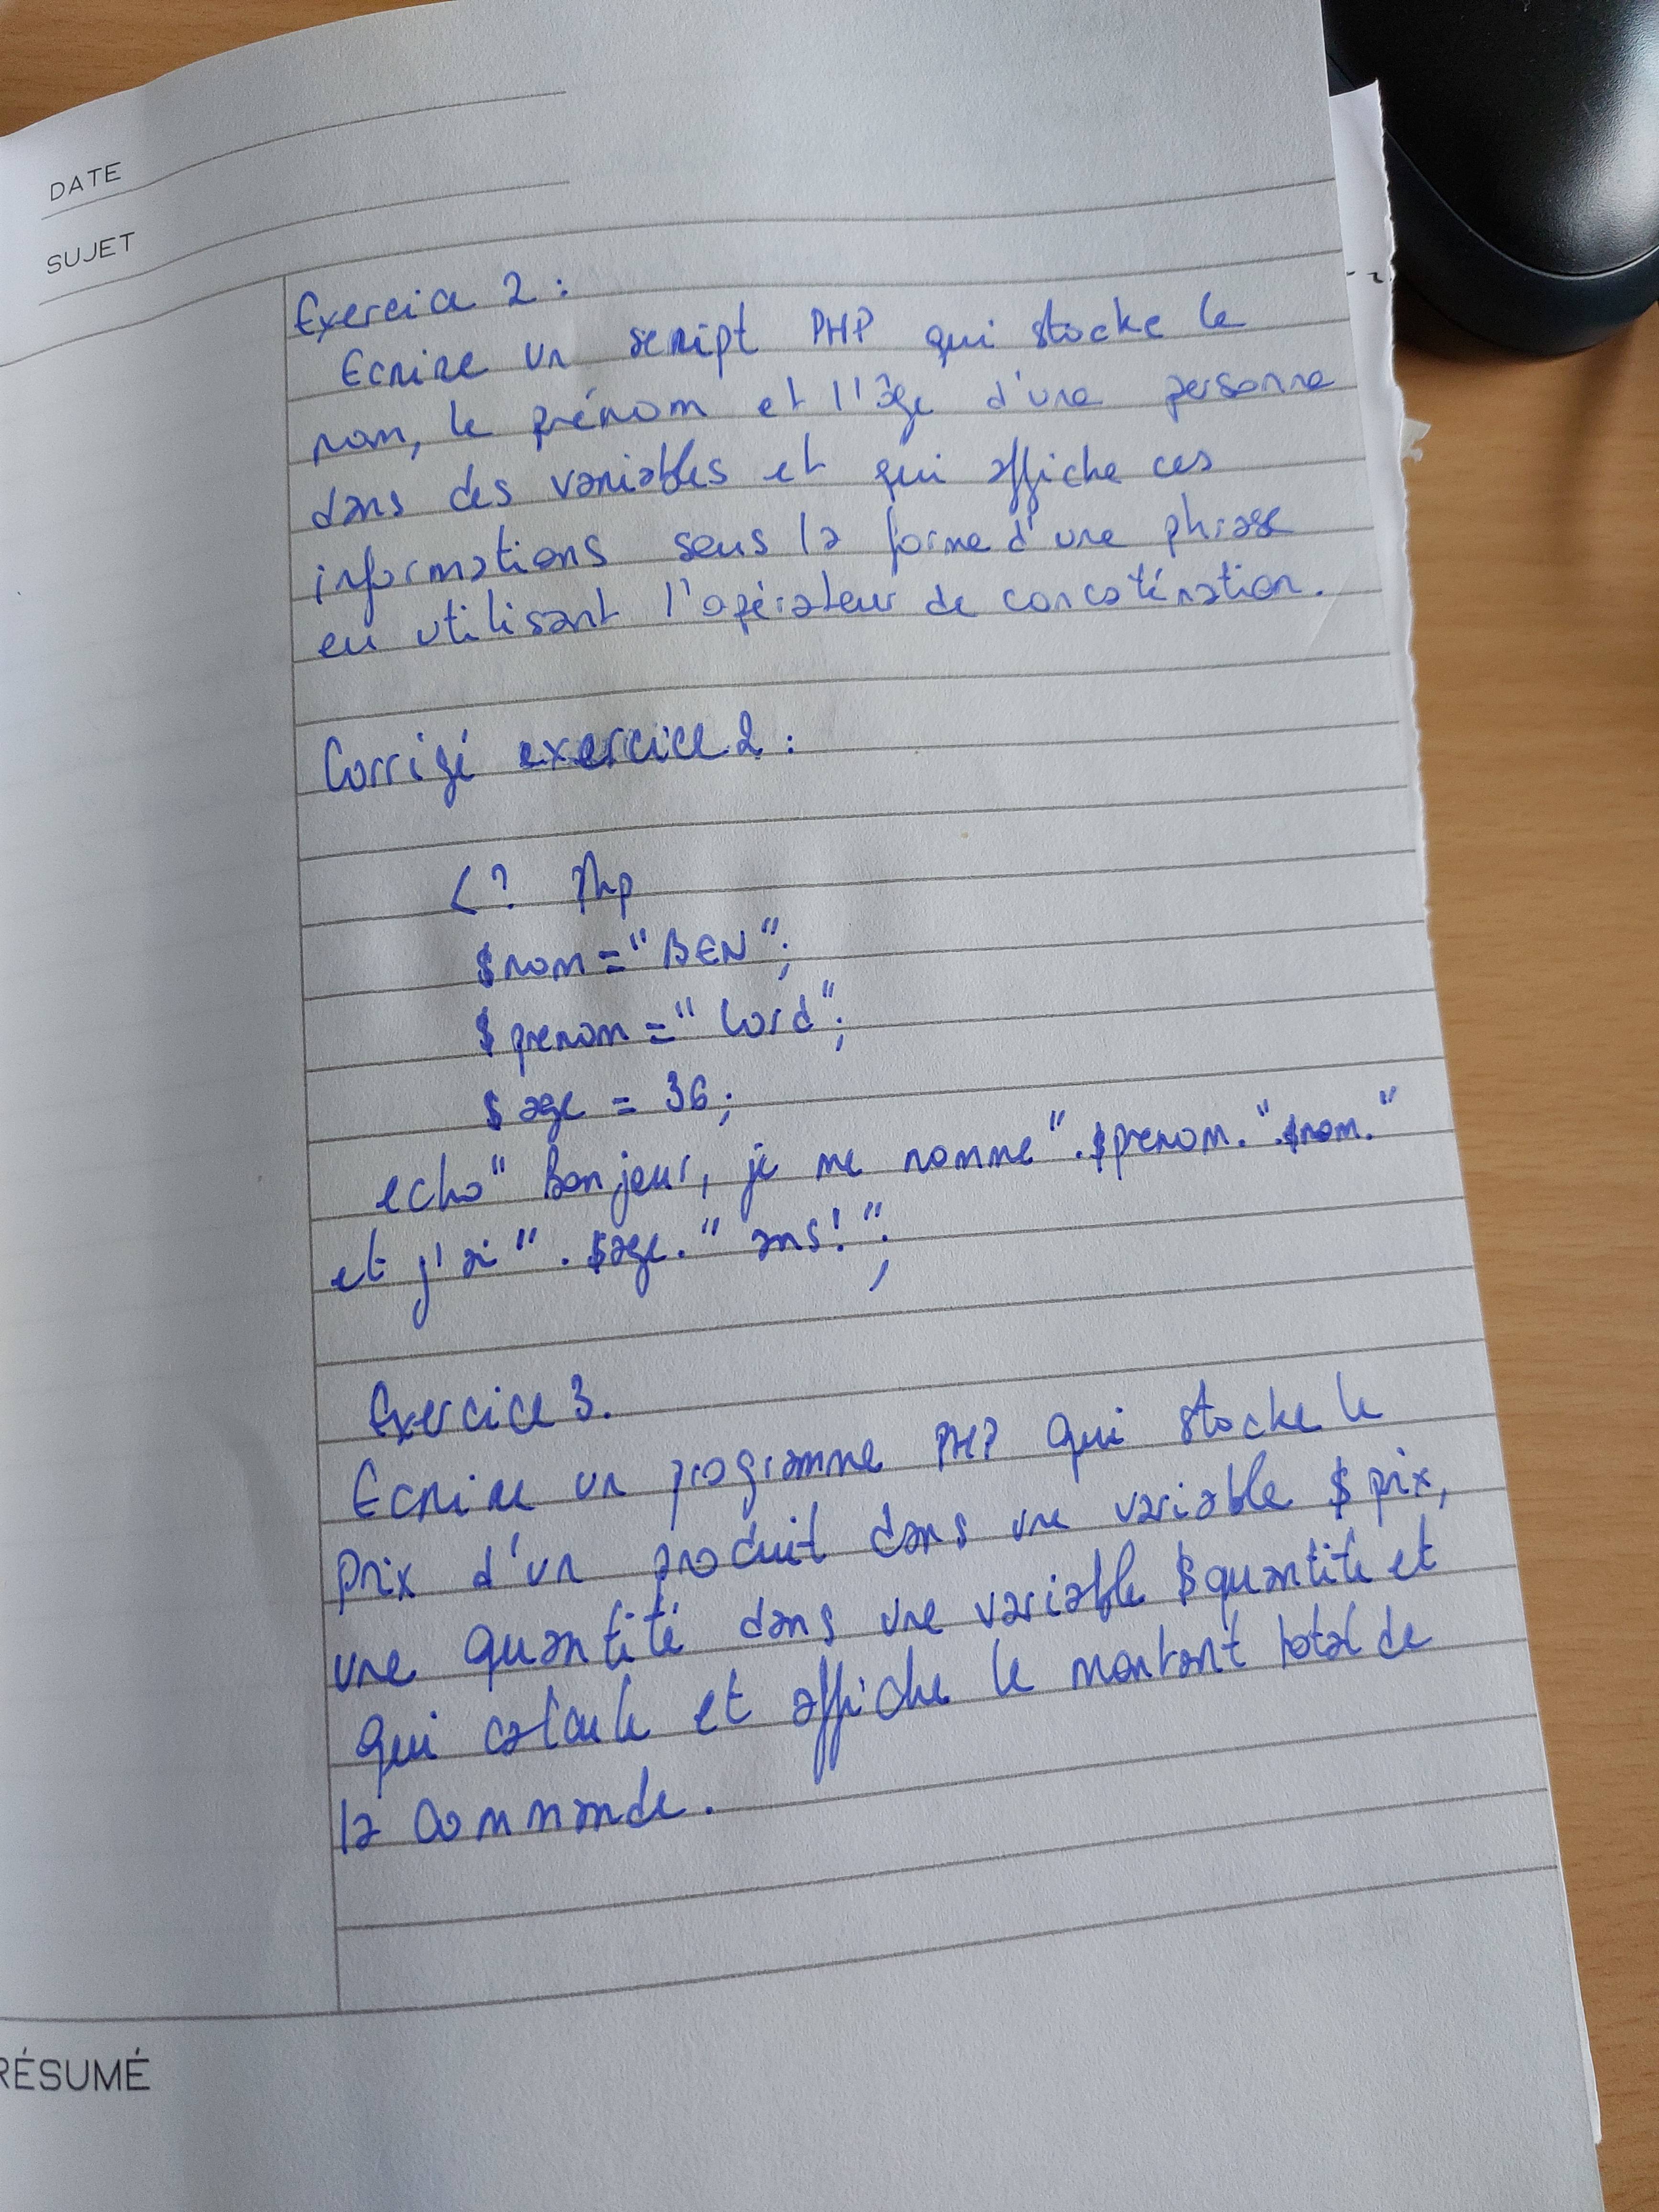 DATE
SUJET
Exercice 2 :
Ecrire un script PHP qui stocke le
nom, le prénom et l'âge d'une personne
dans des variables et qui affiche ces
informations sous la forme d'une phrase
en utilisant l'opérateur de concaténation.
Corrigé exercice 2 :
<? Php
$nom="BEN";
$prenom="Lord";
$age = 36;
echo" Bonjour, je me nomme".$prenom.".$nom."
et j'ai".$age." ans!";
Exercice 3.
Ecrire un programme PHP qui stocke le
prix d'un produit dans une variable $prix,
une quantité dans une variable $quantite et
qui calcule et affiche le montant total de
la commande.
RÉSUMÉ